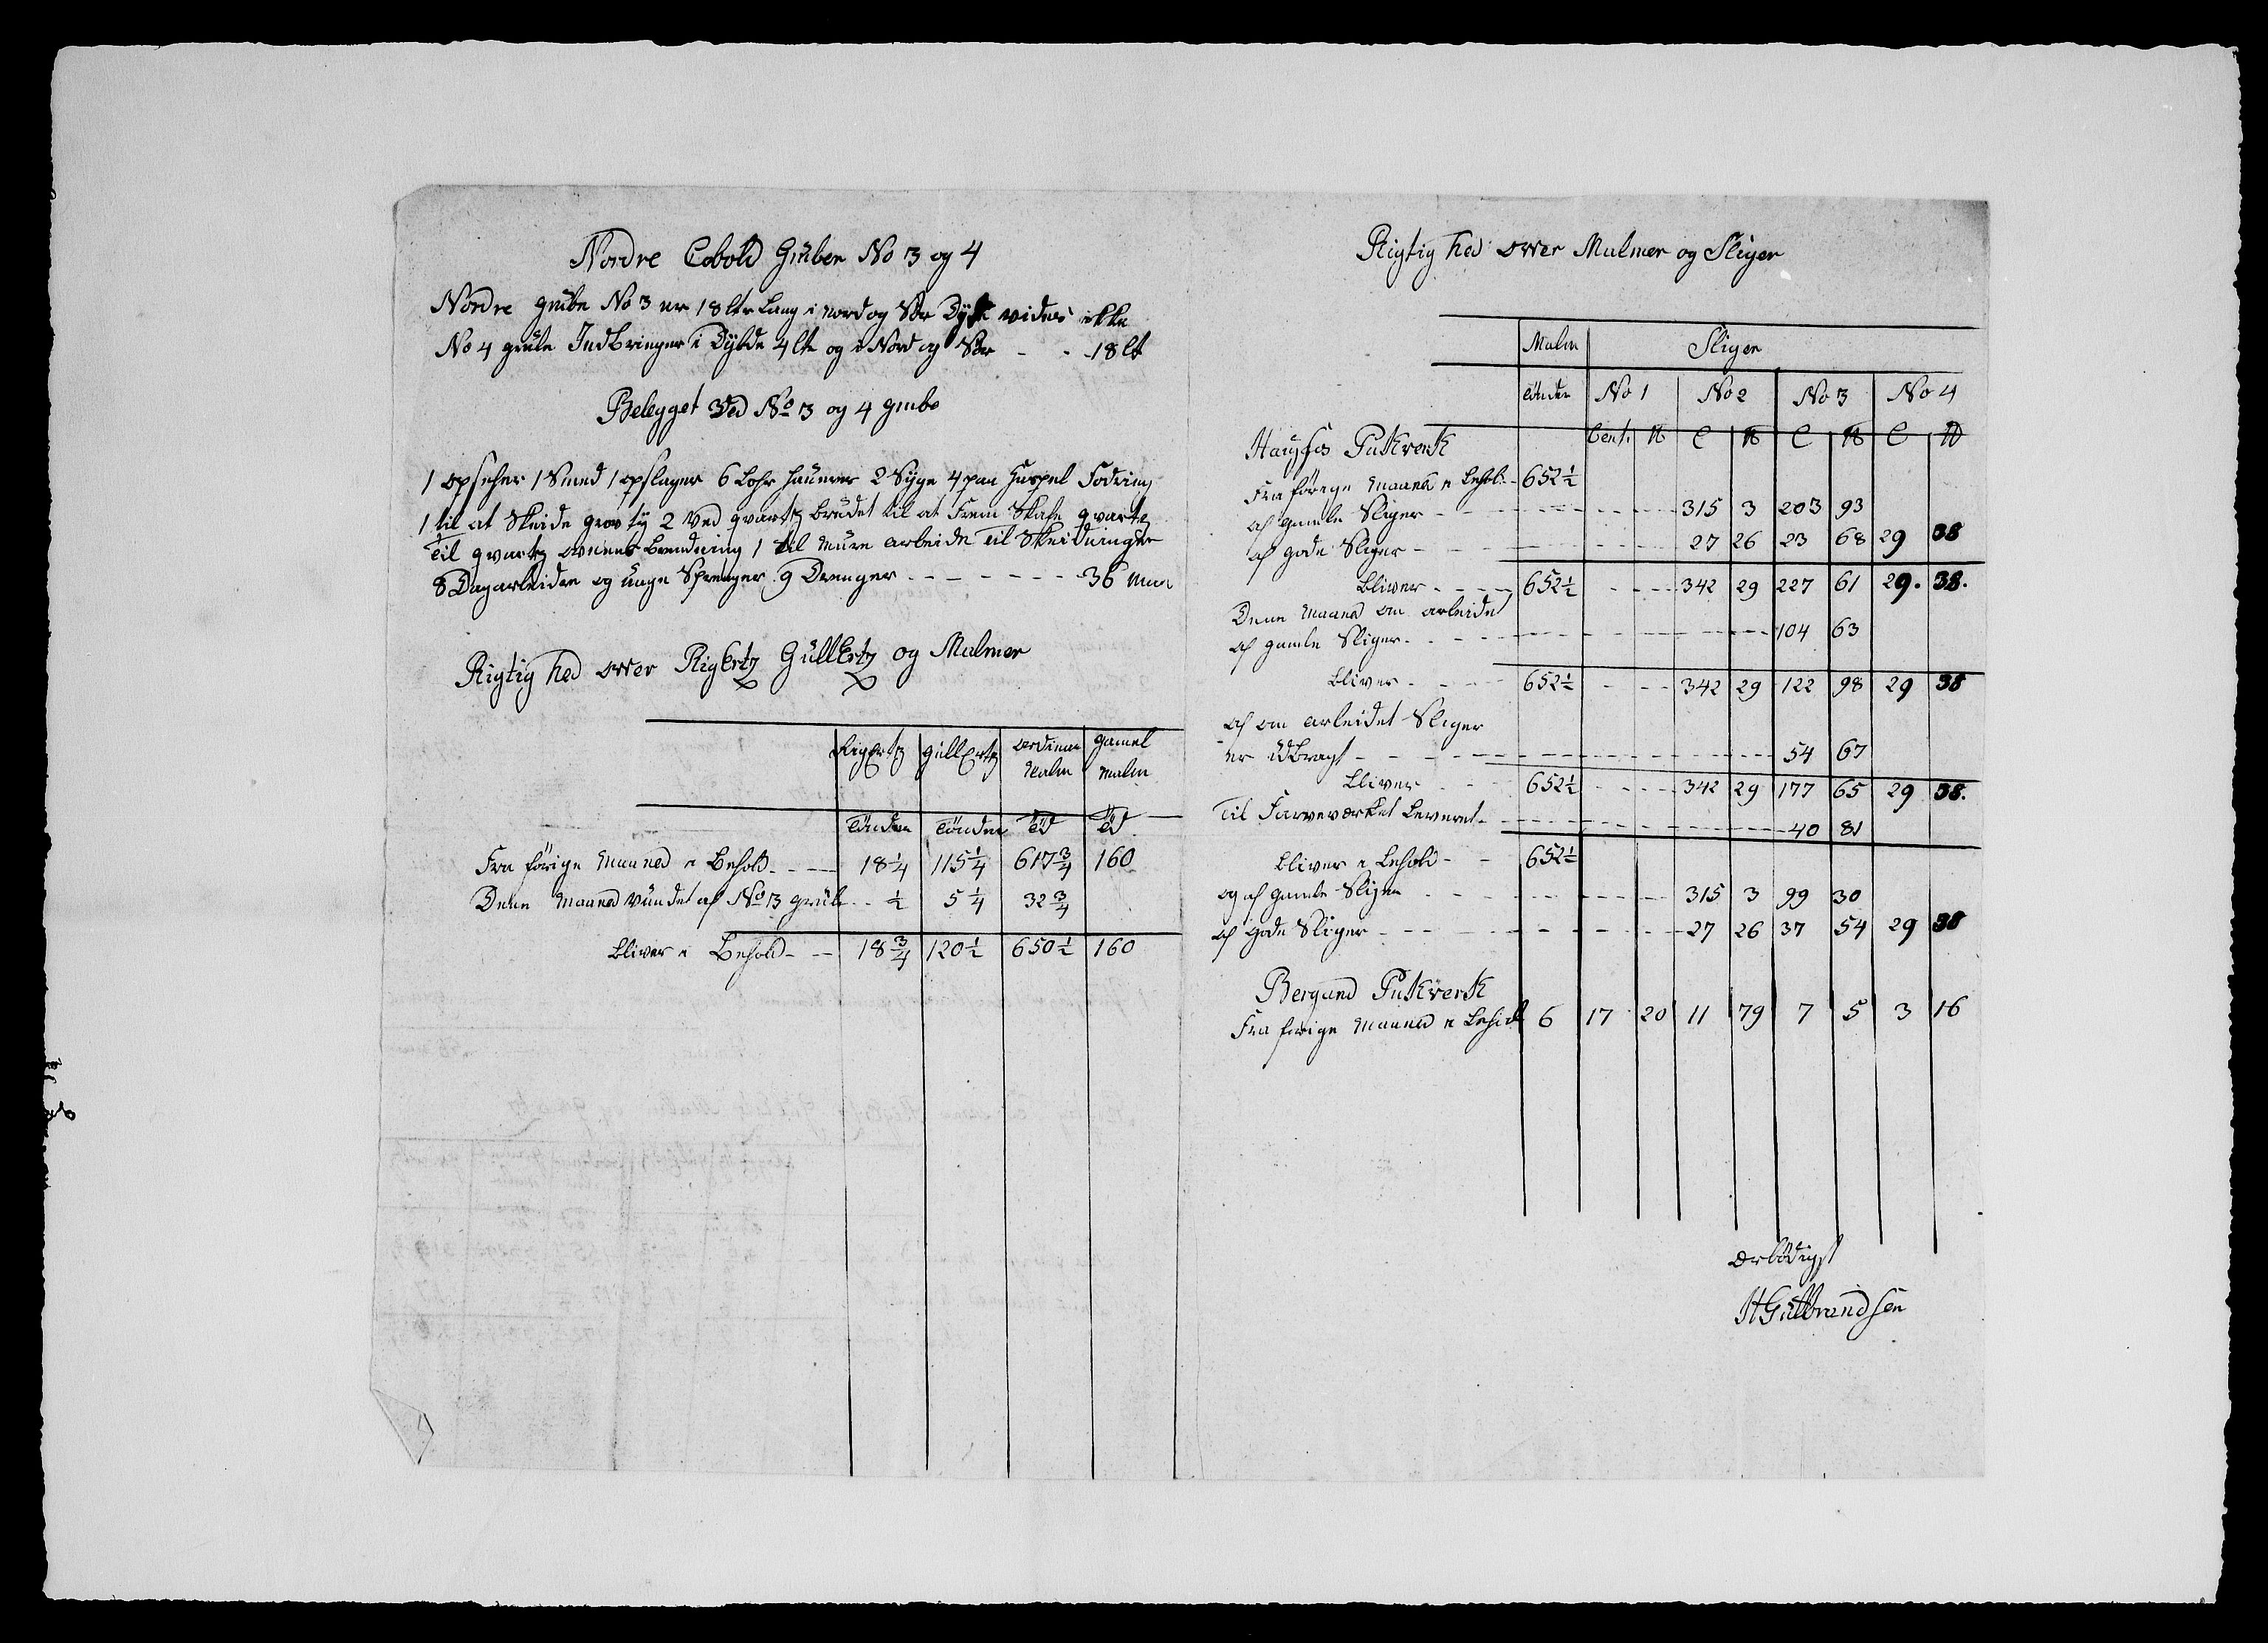 Nordre Cobold Gruber No 3 og 4
Nordre grube No 3 er 18 ltr Lang i Nord og Sør Dybde vides ikke
No 4 grube Indbringer i Dybde 4 ltr og i Nord og Sør - - 18 lt
Belegget Ved No 3 og 4 grube
1 opseher 1 Smed 1 opslager 6 Lohr Haüerer 2 Syge 4 paa Haspel Fodring
1 til at Skeide grov ty 2 Ved qvartz brudet til at Frem Skafe qvartz
Til qvartz ovnens Brendning 1 til Mure arbeide til Skeidningen
8 Dagarbeidere og unge Sprenger 9 Drenger - - - - - - - 36 Man
Rigtig hed over RigErtz GüllErtz og Malmer
RigErtz güllErtz ordinær Malm gamel Malm
Tönder Tönder Töd Töd
Fra förige Maaned i Behold - - - - 18 1/4 115 1/4 617 3/4 160
Dene Maaned vündet af No 3 grübe - - 1/2 5 1/4 32 3/4
bliver i Behold - - - 18 3/4 120 1/2 650 1/2 160
Rigtig hed over Malmer og Sliger
Malm Sliger
Tönder No 1 No 2 No 3 No 4
Cent. ℔ C ℔ C ℔ C ℔
Haugfos Pukverk
Fra förige Maaned i Behol - 652 1/2
af gamle Sliger - - - - - - 315 3 203 93
af gode Sliger - - - - - - 27 26 23 68 29 38
bliver - - - - 652 1/2 - - - - 342 29 227 61 29. 38.
Dene Maaned om arbeidet
af gamle Sliger - - - - - - - 104 63
bliver - - - - 652 1/2 - - - 342 29 122 98 29 38
af om arbeidet Sliger
er üdbragt - - - - - - - - 54 67
bliver - - 652 1/2 - - - - 342 29 177 65 29 38.
Til Farveværket Leveret - - - - - - - 40 81
bliver i Behold - - 652 1/2
og af gamle Sliger - - - - - - 315 3 99 30
af gode Sliger - - - - - - 27 26 37 54 29 38
Bergand Pukverk
Fra förige Maaned i Behold 6 17 20 11 79 7 5 3 16
ærbödigst
H Gülbrandsen